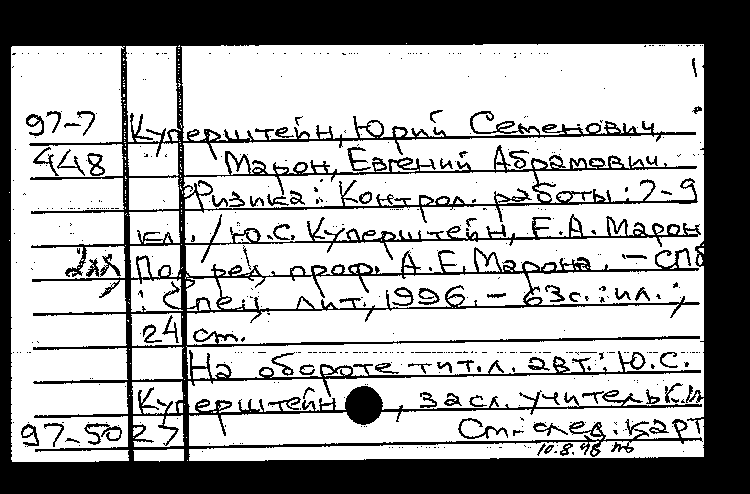 97-7 Куперштейн, Юрий Семенович,
448 Марон, Евгений Абрамович.
Физика: Контрол. работы: 7-9
кл. / Ю.С. Куперштейн, Е.А. Марон
Под ред. проф. А.Е. Марона. - СПб
: Спец. лит., 1996. - 63с.: ил.;
24 см.
На обороте тит.л. авт.: Ю.С.
Куперштейн, засл. учитель
97-5025 См. след. карт
10.8.98